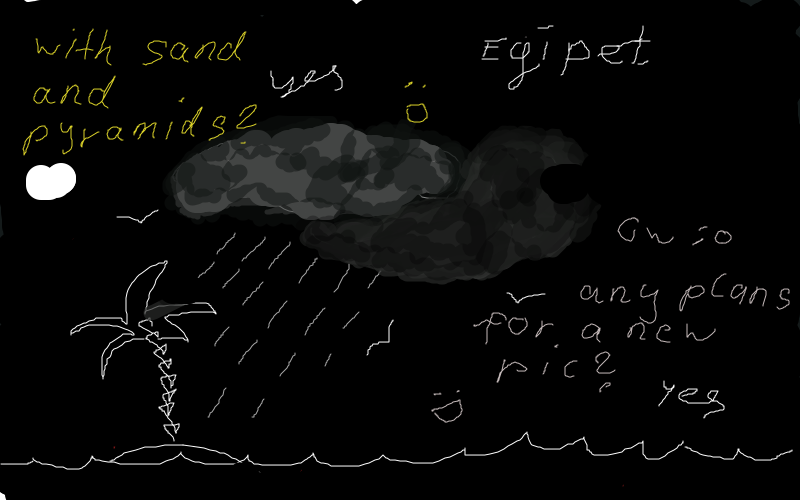 with sand
and
pyramids?
yes
Egipet
any plans
for a new
pic?
yes